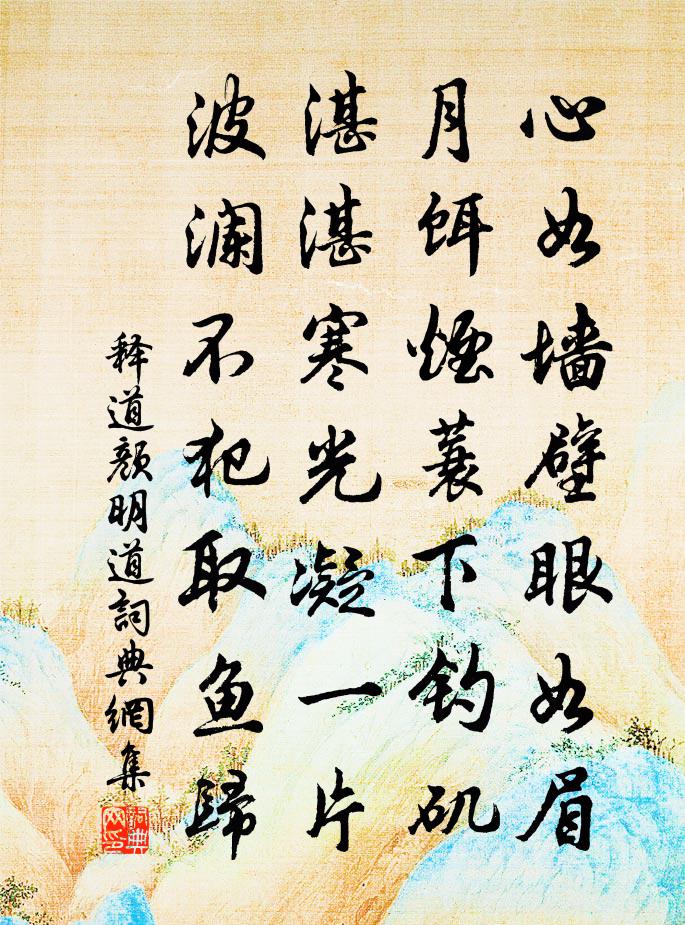 心如墙壁眼如眉
月饵煙蓑下钓矶
湛湛寒光凝一片
波澜不犯取鱼歸
释道颜明道詞典網集
詞典
网印